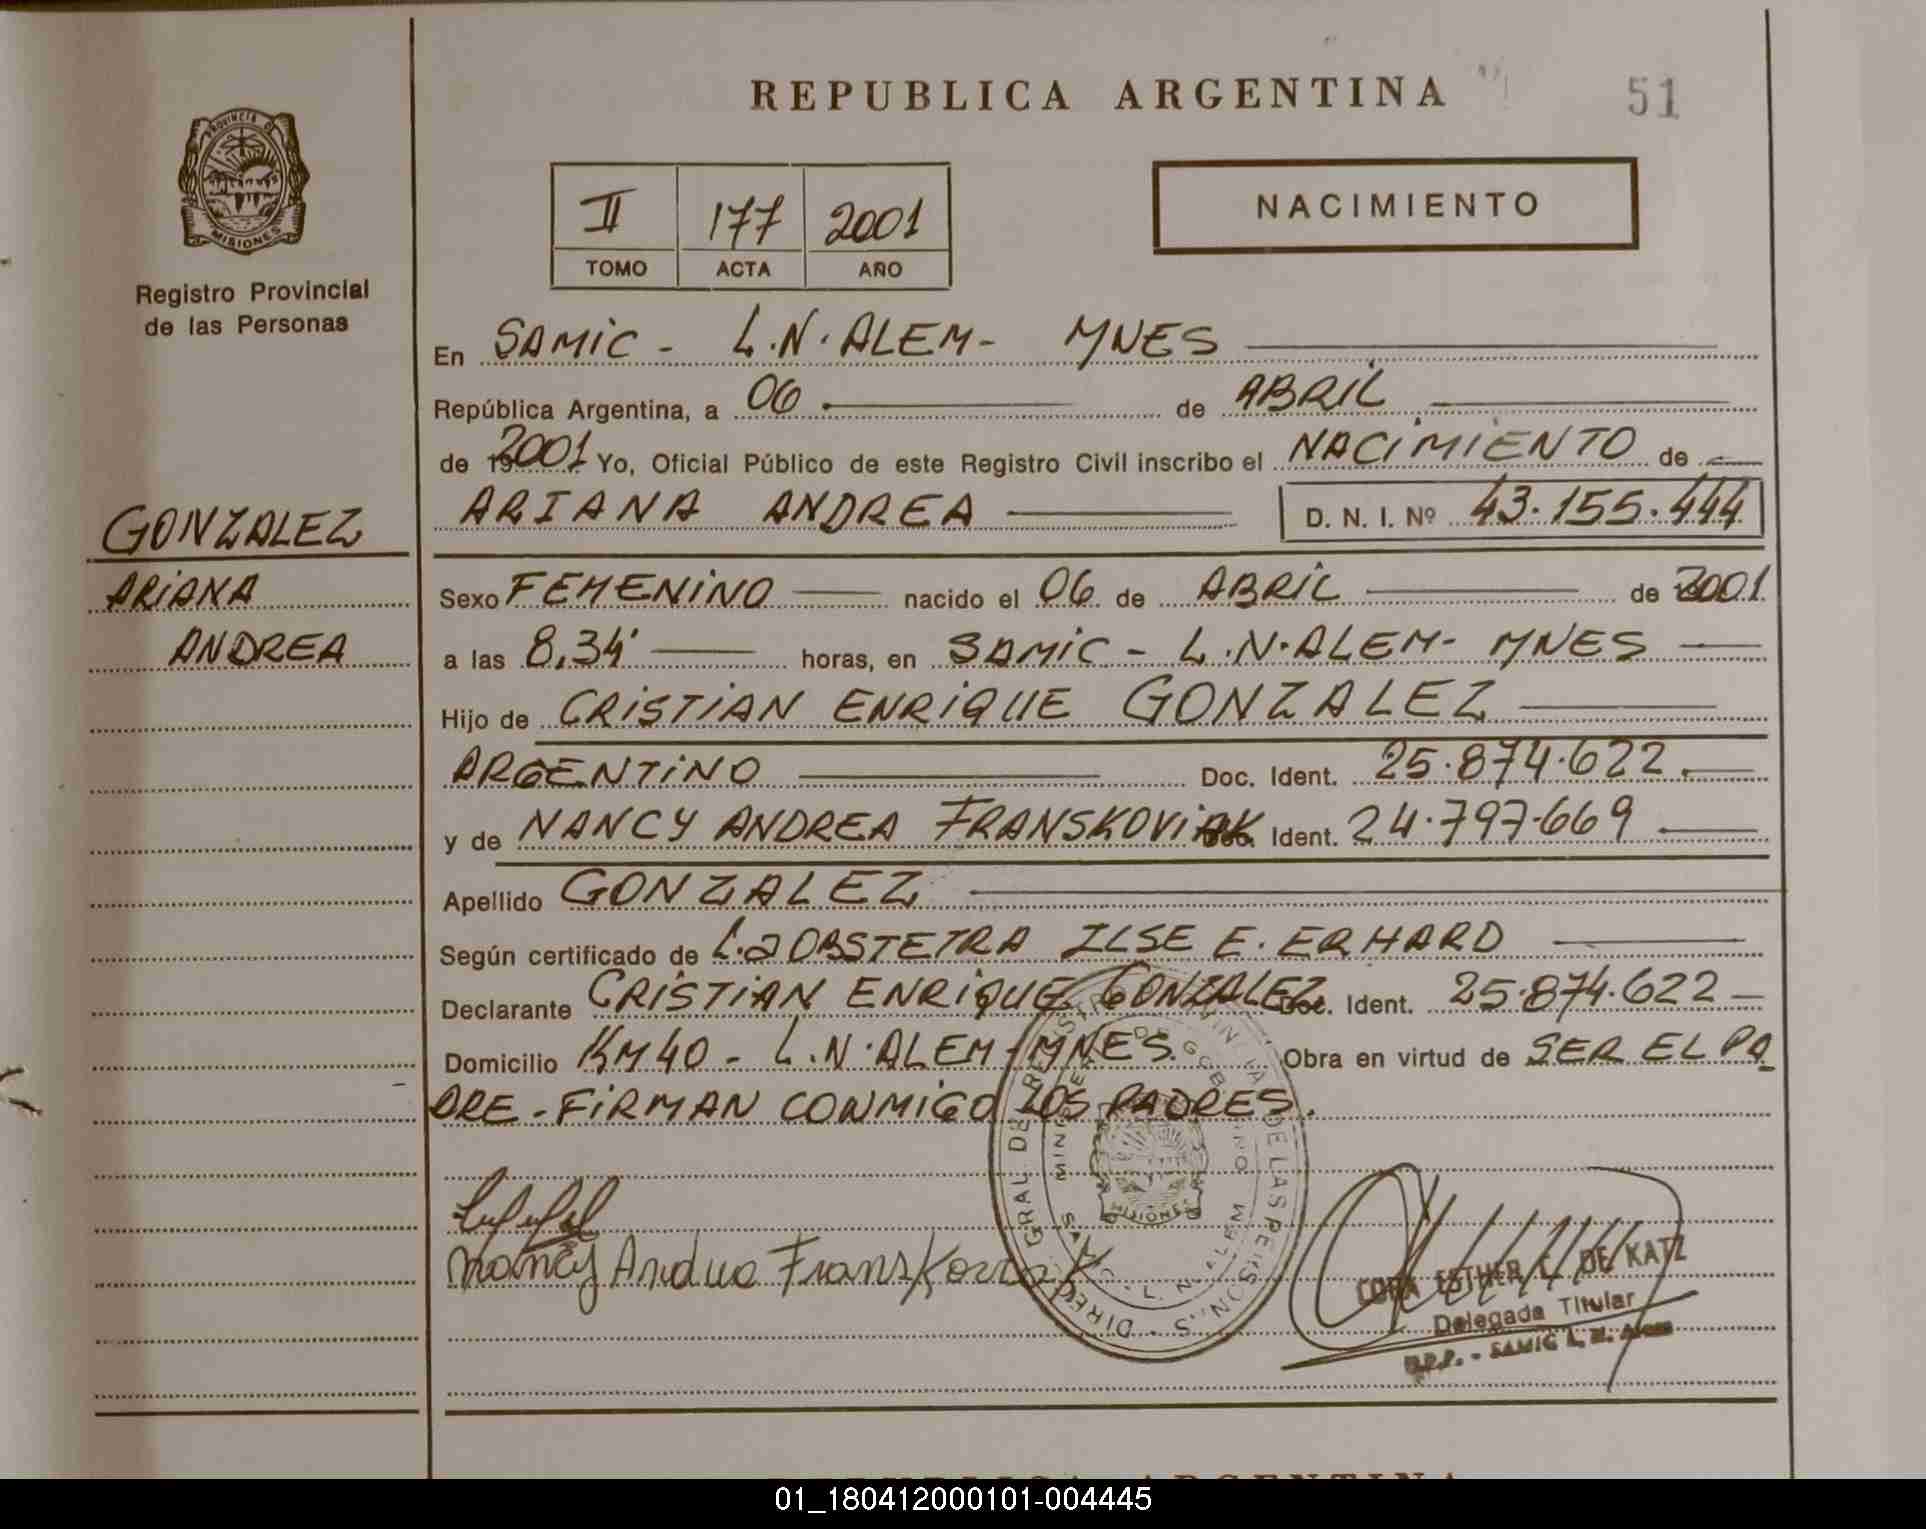 REPUBLICA ARGENTINA
51
PROVINCIA DE
MISIONES
Registro Provincial
de las Personas
II 177 2001
TOMO ACTA AÑO
NACIMIENTO
En SAMIC - L.N. ALEM - MNES
República Argentina, a 06 de ABRIL
de 2001 Yo, Oficial Público de este Registro Civil inscribo el NACIMIENTO de
ARIANA ANDREA D. N. I. Nº 43.155.444
GONZALEZ
ARIANA
ANDREA
Sexo FEMENINO nacido el 06 de ABRIL de 2001
a las 8,34' horas, en SAMIC - L.N. ALEM - MNES
Hijo de CRISTIAN ENRIQUE GONZALEZ
ARGENTINO Doc. Ident. 25.874.622.
y de NANCY ANDREA FRANSKOVIAK Doc. Ident. 24.797.669
Apellido GONZALEZ
Según certificado de L.a OBSTETRA ILSE E. ERHARD
Declarante CRISTIAN ENRIQUE GONZALEZ Doc. Ident. 25.874.622
Domicilio KM 40 - L.N. ALEM - MNES. Obra en virtud de SER EL PA
DRE - FIRMAN CONMIGO LOS PADRES.
Nancy Andrea Franskoviak
ESTHER DE KATZ
Delegada Titular
SAMIC L. N. Alem
01_180412000101-004445